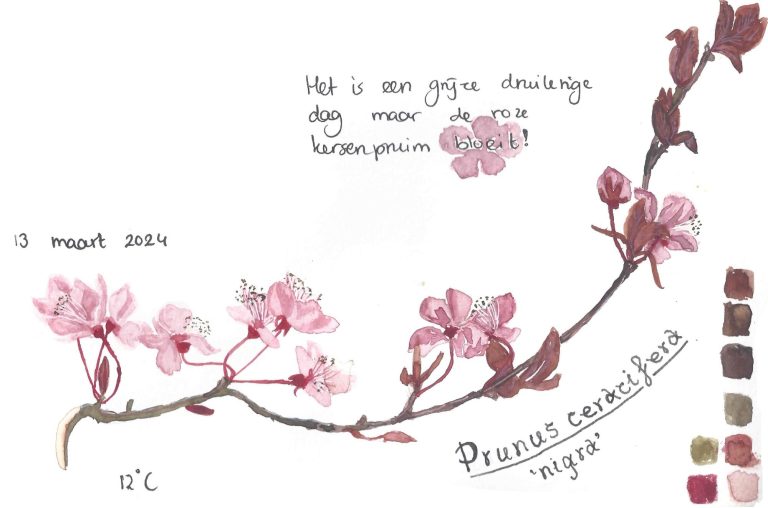 Het is een grijze druilerige
dag maar de roze
kersenpruim bloeit!
13 maart 2024
Prunus ceracifera
'nigra'
12°C